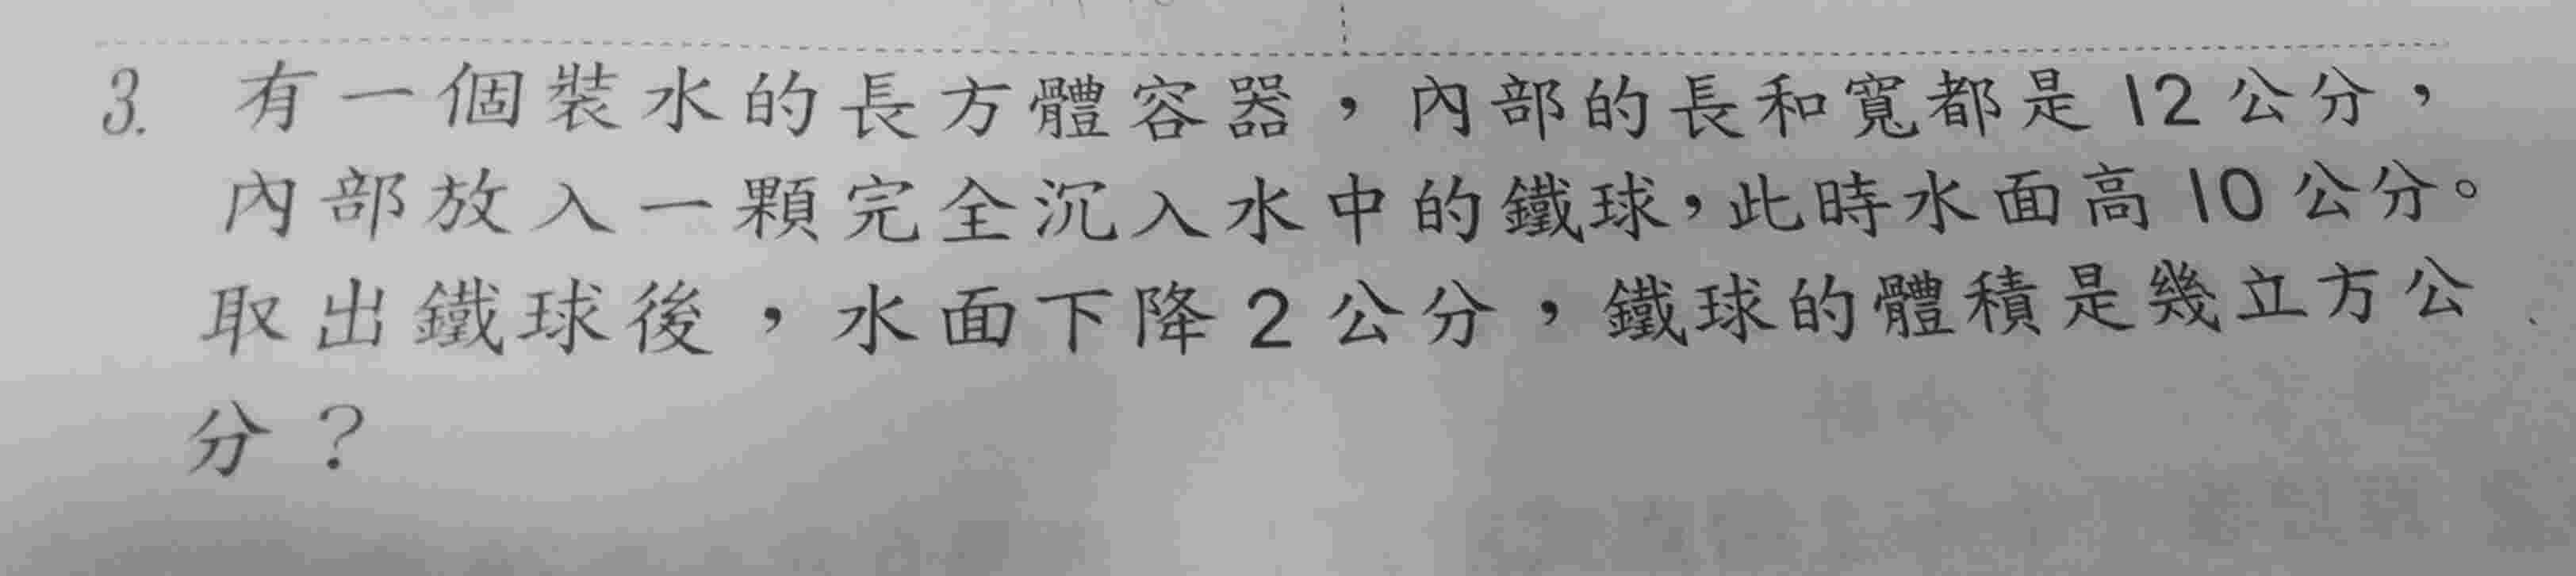 3. 有一個裝水的長方體容器，內部的長和寬都是12公分，
內部放入一顆完全沉入水中的鐵球，此時水面高10公分。
取出鐵球後，水面下降2公分，鐵球的體積是幾立方公
分？